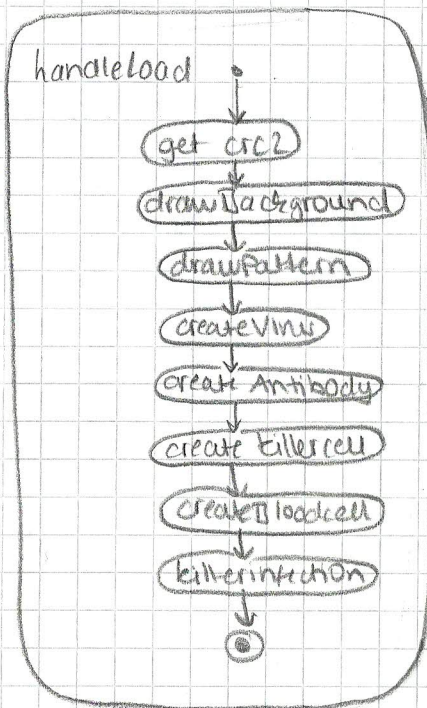 handleLoad
get crc2
drawBackground
drawPattern
createVirus
create Antibody
create killercell
createBloodcell
killerinfection